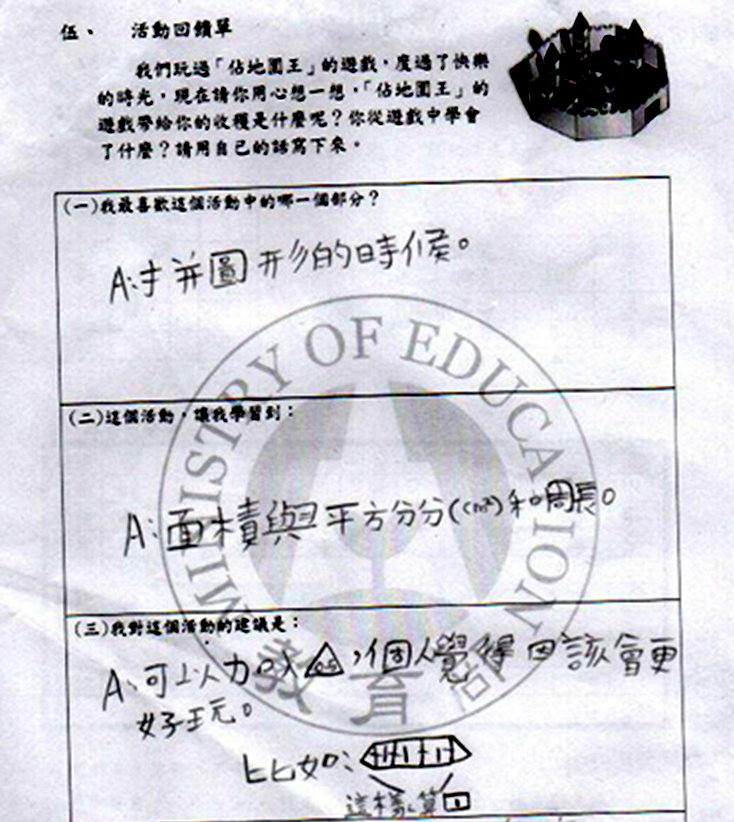 伍、 活動回饋單
我們玩過「佔地圍王」的遊戲，度過了快樂
的時光，現在請你用心想一想，「佔地圍王」的
遊戲帶給你的收穫是什麼呢？你從遊戲中學會
了什麼？請用自己的話寫下來。
(一)我最喜歡這個活動中的哪一個部分？
A:拼圖形的時候。
(二)這個活動，讓我學習到：
A:面積與平方分分(cm²)和周長。
(三)我對這個活動的建議是：
A:可以加入0.5，個人覺得因該會更
好玩。
比如:
這樣算1
MINISTRY OF EDUCATION
教育部